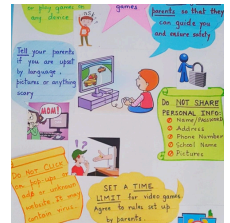 or play games in
any device.
NO!
games
parents so that they
can guide you
and ensure safety
Tell your parents
if you are upset
by language,
pictures or anything
scary
MOM!
Do NOT SHARE
PERSONAL INFO:
Name/Password
Address
Phone Number
School Name
Pictures
Do NOT CLICK
on pop-ups or
add or unknown
website. It may
contain virus.
SET A TIME
LIMIT for video games.
Agree to rules set up
by parents.